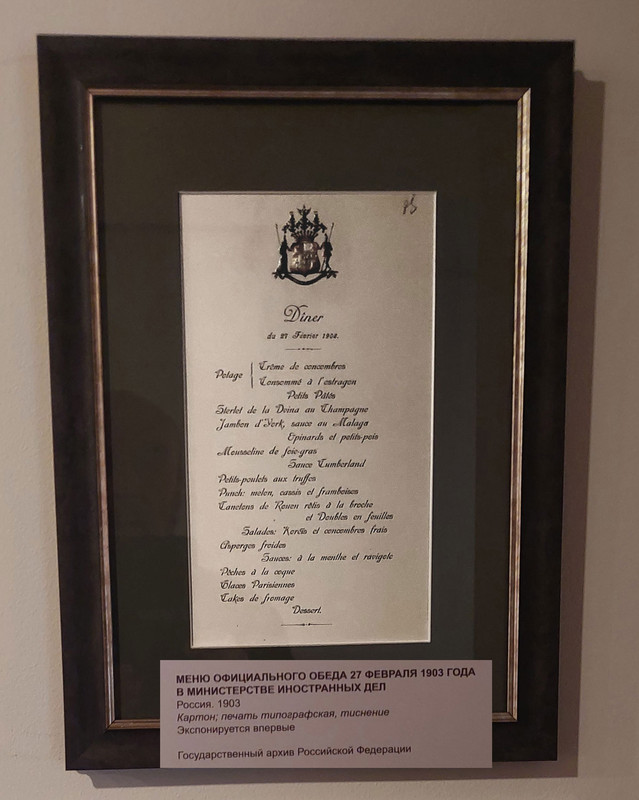 Dîner
du 27 Février 1903.
Potage
Crême de concombres
Consommé à l'estragon
Petits Pâtés
Sterlet de la Dvina au Champagne
Jambon d'York, sauce au Malaga
Epinards et petits-pois
Mousseline de foie-gras
Sauce Cumberland
Petits-poulets aux truffes
Punch: melon, cassis et framboises
Canetons de Rouen rôtis à la broche
et Doubles en feuilles
Salades: et concombres frais
Asperges froides
Sauces: à la menthe et ravigote
Pêches à la coque
Glaces Parisiennes
Cakes de fromage
Dessert.
МЕНЮ ОФИЦИАЛЬНОГО ОБЕДА 27 ФЕВРАЛЯ 1903 ГОДА
В МИНИСТЕРСТВЕ ИНОСТРАННЫХ ДЕЛ
Россия. 1903
Картон; печать типографская, тиснение
Экспонируется впервые
Государственный архив Российской Федерации